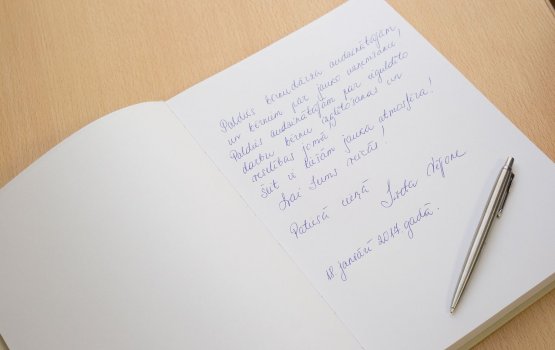 Paldies bērnudārza audzinātājām
un bērniem par jauko uzņemšanu!
Paldies audzinātājām par ieguldīto
darbu bērnu izglītošanas un
veselības jomā!
Šeit ir tiešām jauka atmosfēra!
Lai Jums veicās!
Patiesā cieņā
18. janvārī 2017. gadā.